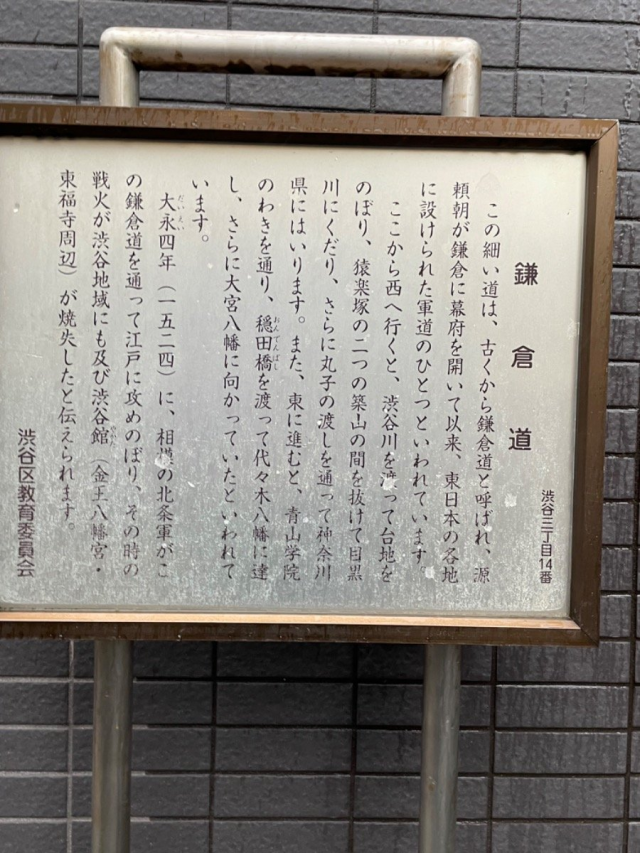 鎌倉道
渋谷三丁目14番
この細い道は、古くから鎌倉道と呼ばれ、源
頼朝が鎌倉に幕府を開いて以来、東日本の各地
に設けられた軍道のひとつといわれています。
ここから西へ行くと、渋谷川を渡って台地を
のぼり、猿楽塚の二つの築山の間を抜けて目黒
川にくだり、さらに丸子の渡しを通って神奈川
県にはいります。また、東に進むと、青山学院
のわきを通り、穏田橋を渡って代々木八幡に達
し、さらに大宮八幡に向かっていたといわれて
います。
大永四年（一五二四）に、相模の北条軍がこ
の鎌倉道を通って江戸に攻めのぼり、その時の
戦火が渋谷地域にも及び渋谷館（金王八幡宮・
東福寺周辺）が焼失したと伝えられます。
渋谷区教育委員会